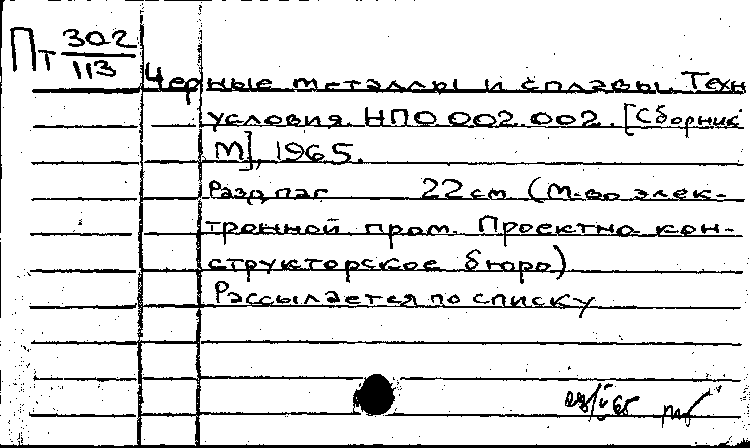 Пт 302
113
Черные металлы и сплавы. Техн
условия. НПО.002.002. [Сборник
М], 1965.
Разд паг 22 см (М-во элек-
тронной пром. Проектно кон-
структорское бюро)
Рассылается по списку